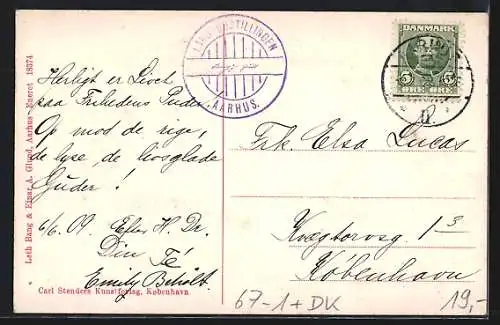 Leth Bang & Ejnar A. Gimpel, Aarhus. Eneret 18374
Herligt er Livet
paa Frihedens Puder.
Op mod de rige,
de lyse, de livsglade
Guder!
6/6. 09.
Din Té
Emily
Carl Stenders Kunstforlag, København.
LANDSUDSTILLINGEN
AARHUS.
DANMARK
5 5
ØRE ØRE
Frk. Elsa Lucas
Kvægtorvsg. 1 3
København
67-1+DK
19,-